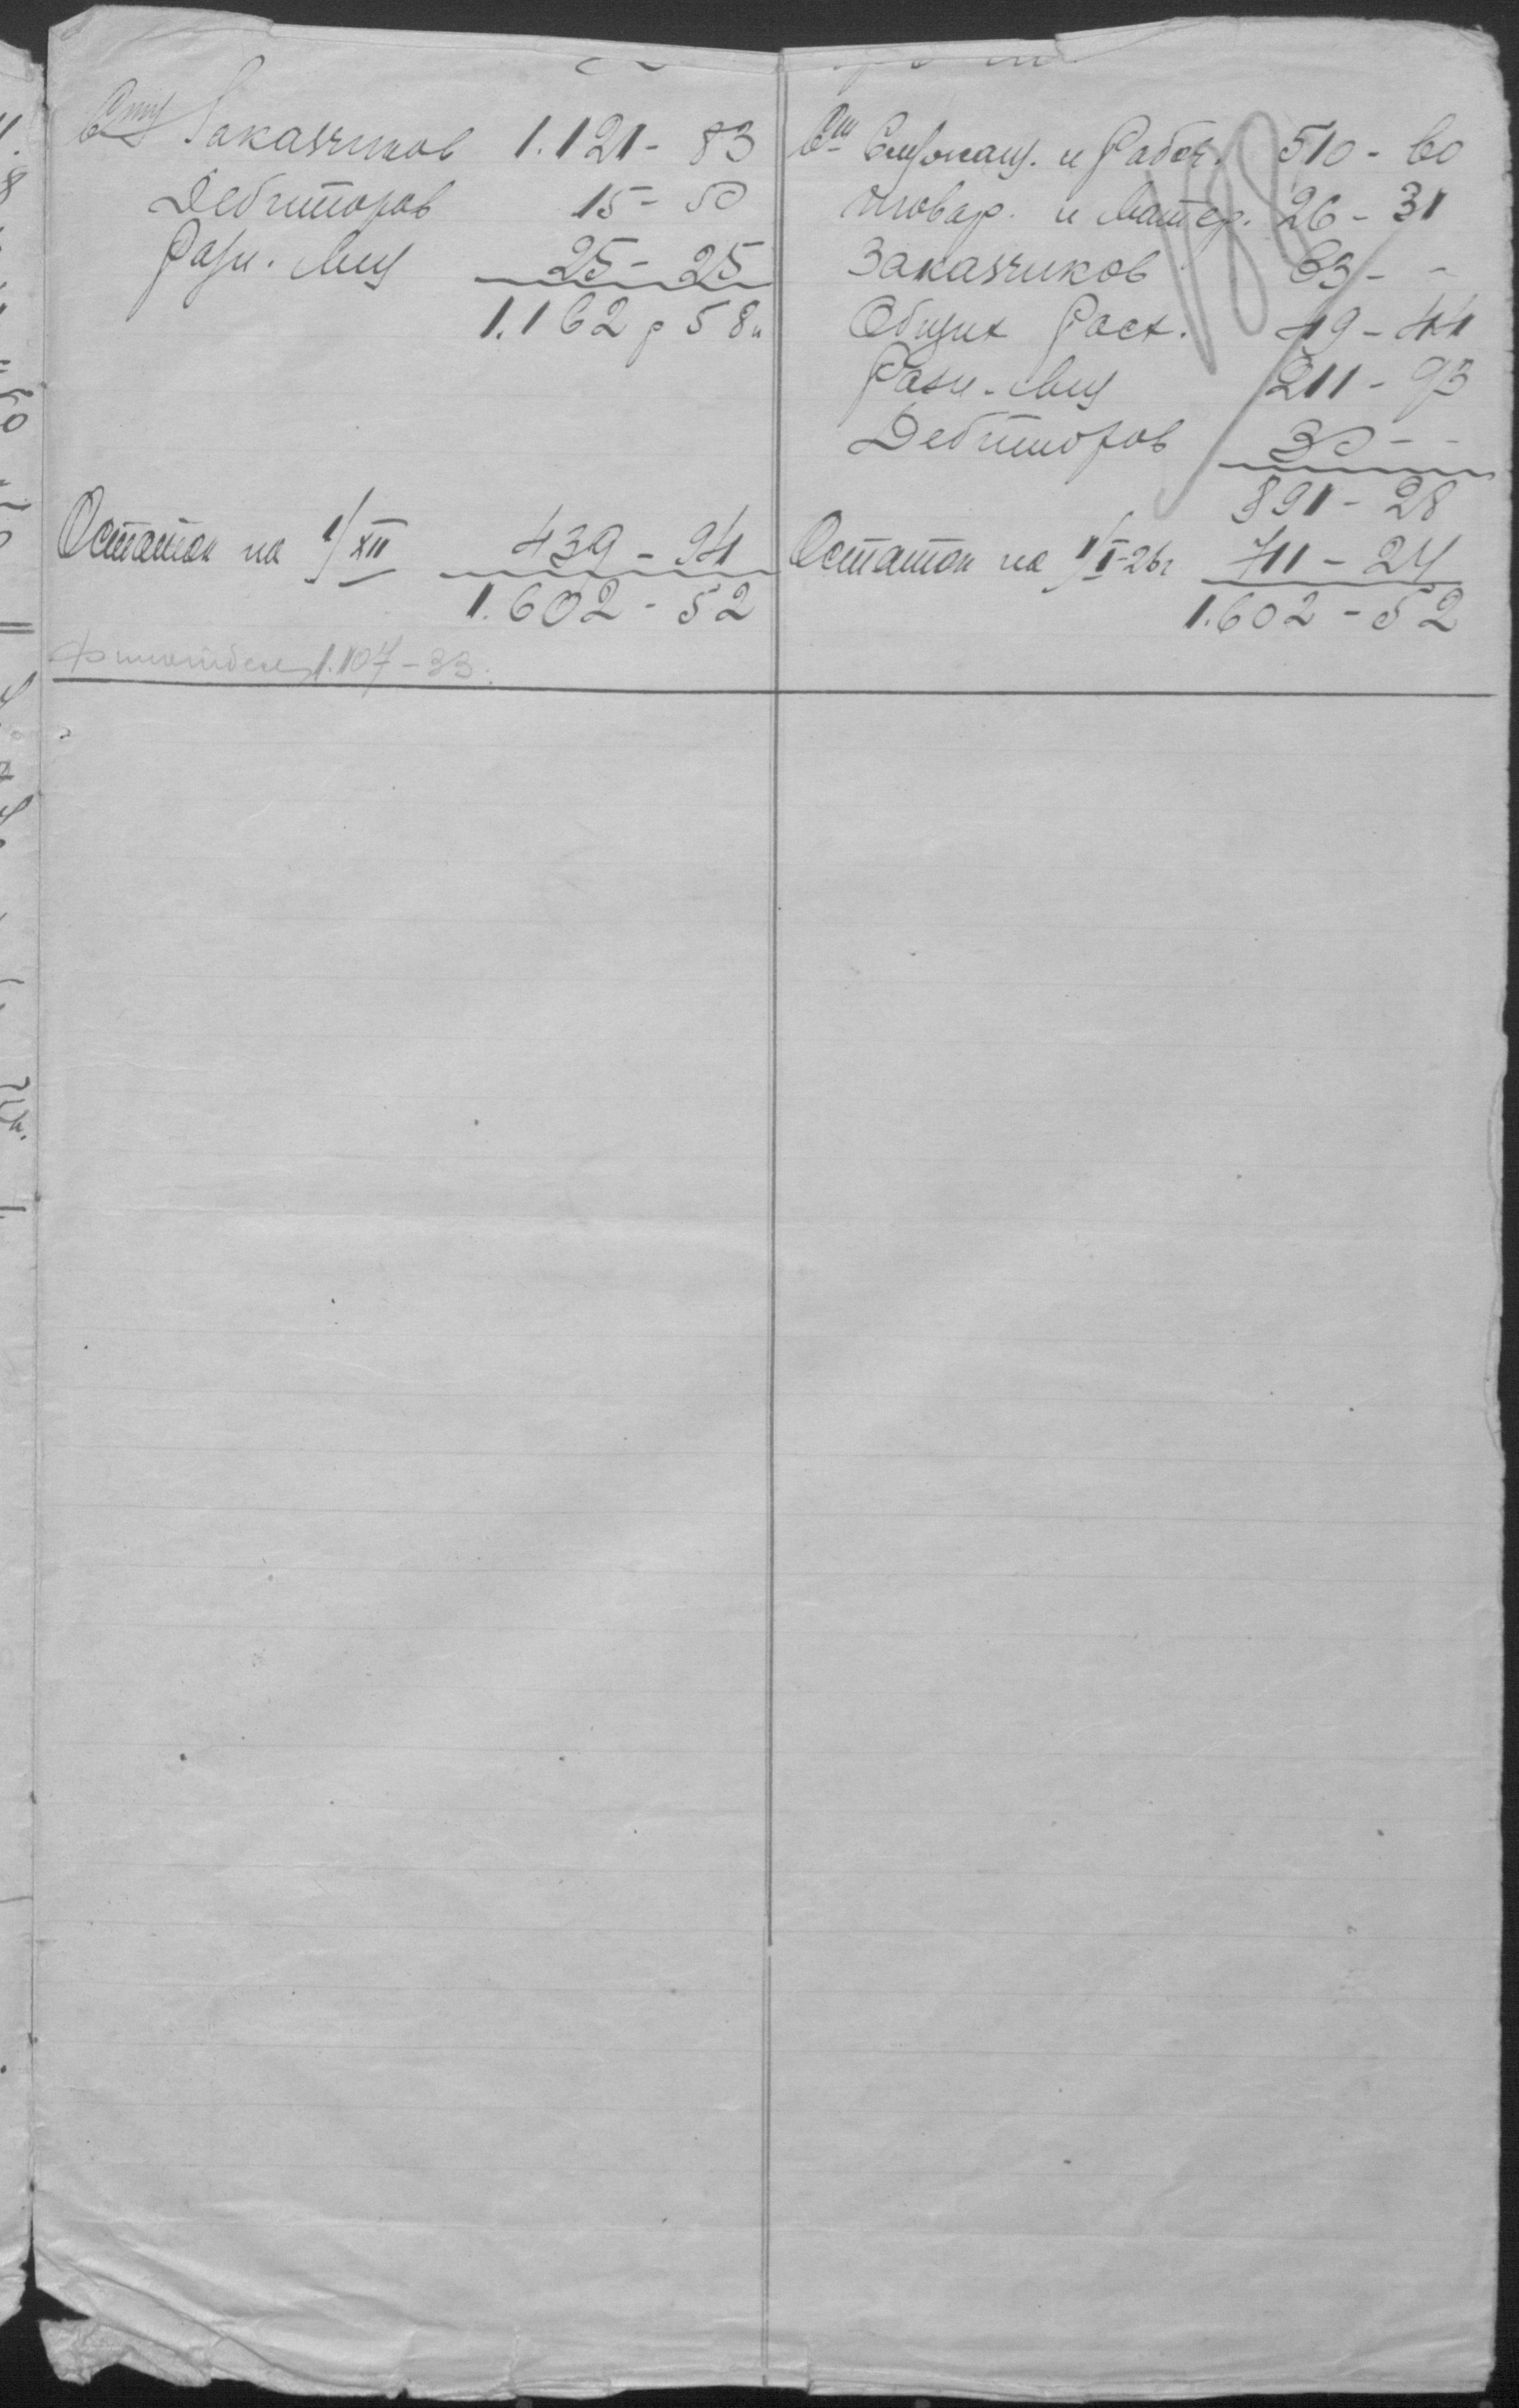 Заказчиков 1.121 - 83
Дебиторов 15 - 50
Разн. Лиц 25 - 25
1.162 р 58 к
Остаток на 1/XII 439 - 94
1.602 - 52
1.107 - 33.
Служащ. и Рабоч. 510 - 60
Товар. и Матер. 26 - 31
Заказчиков 63 - -
Общих Расх. 49 - 44
Разн. Лиц 211 - 93
Дебиторов 30 - -
891 - 28
Остаток на 1/I-26г 711 - 24
1.602 - 52